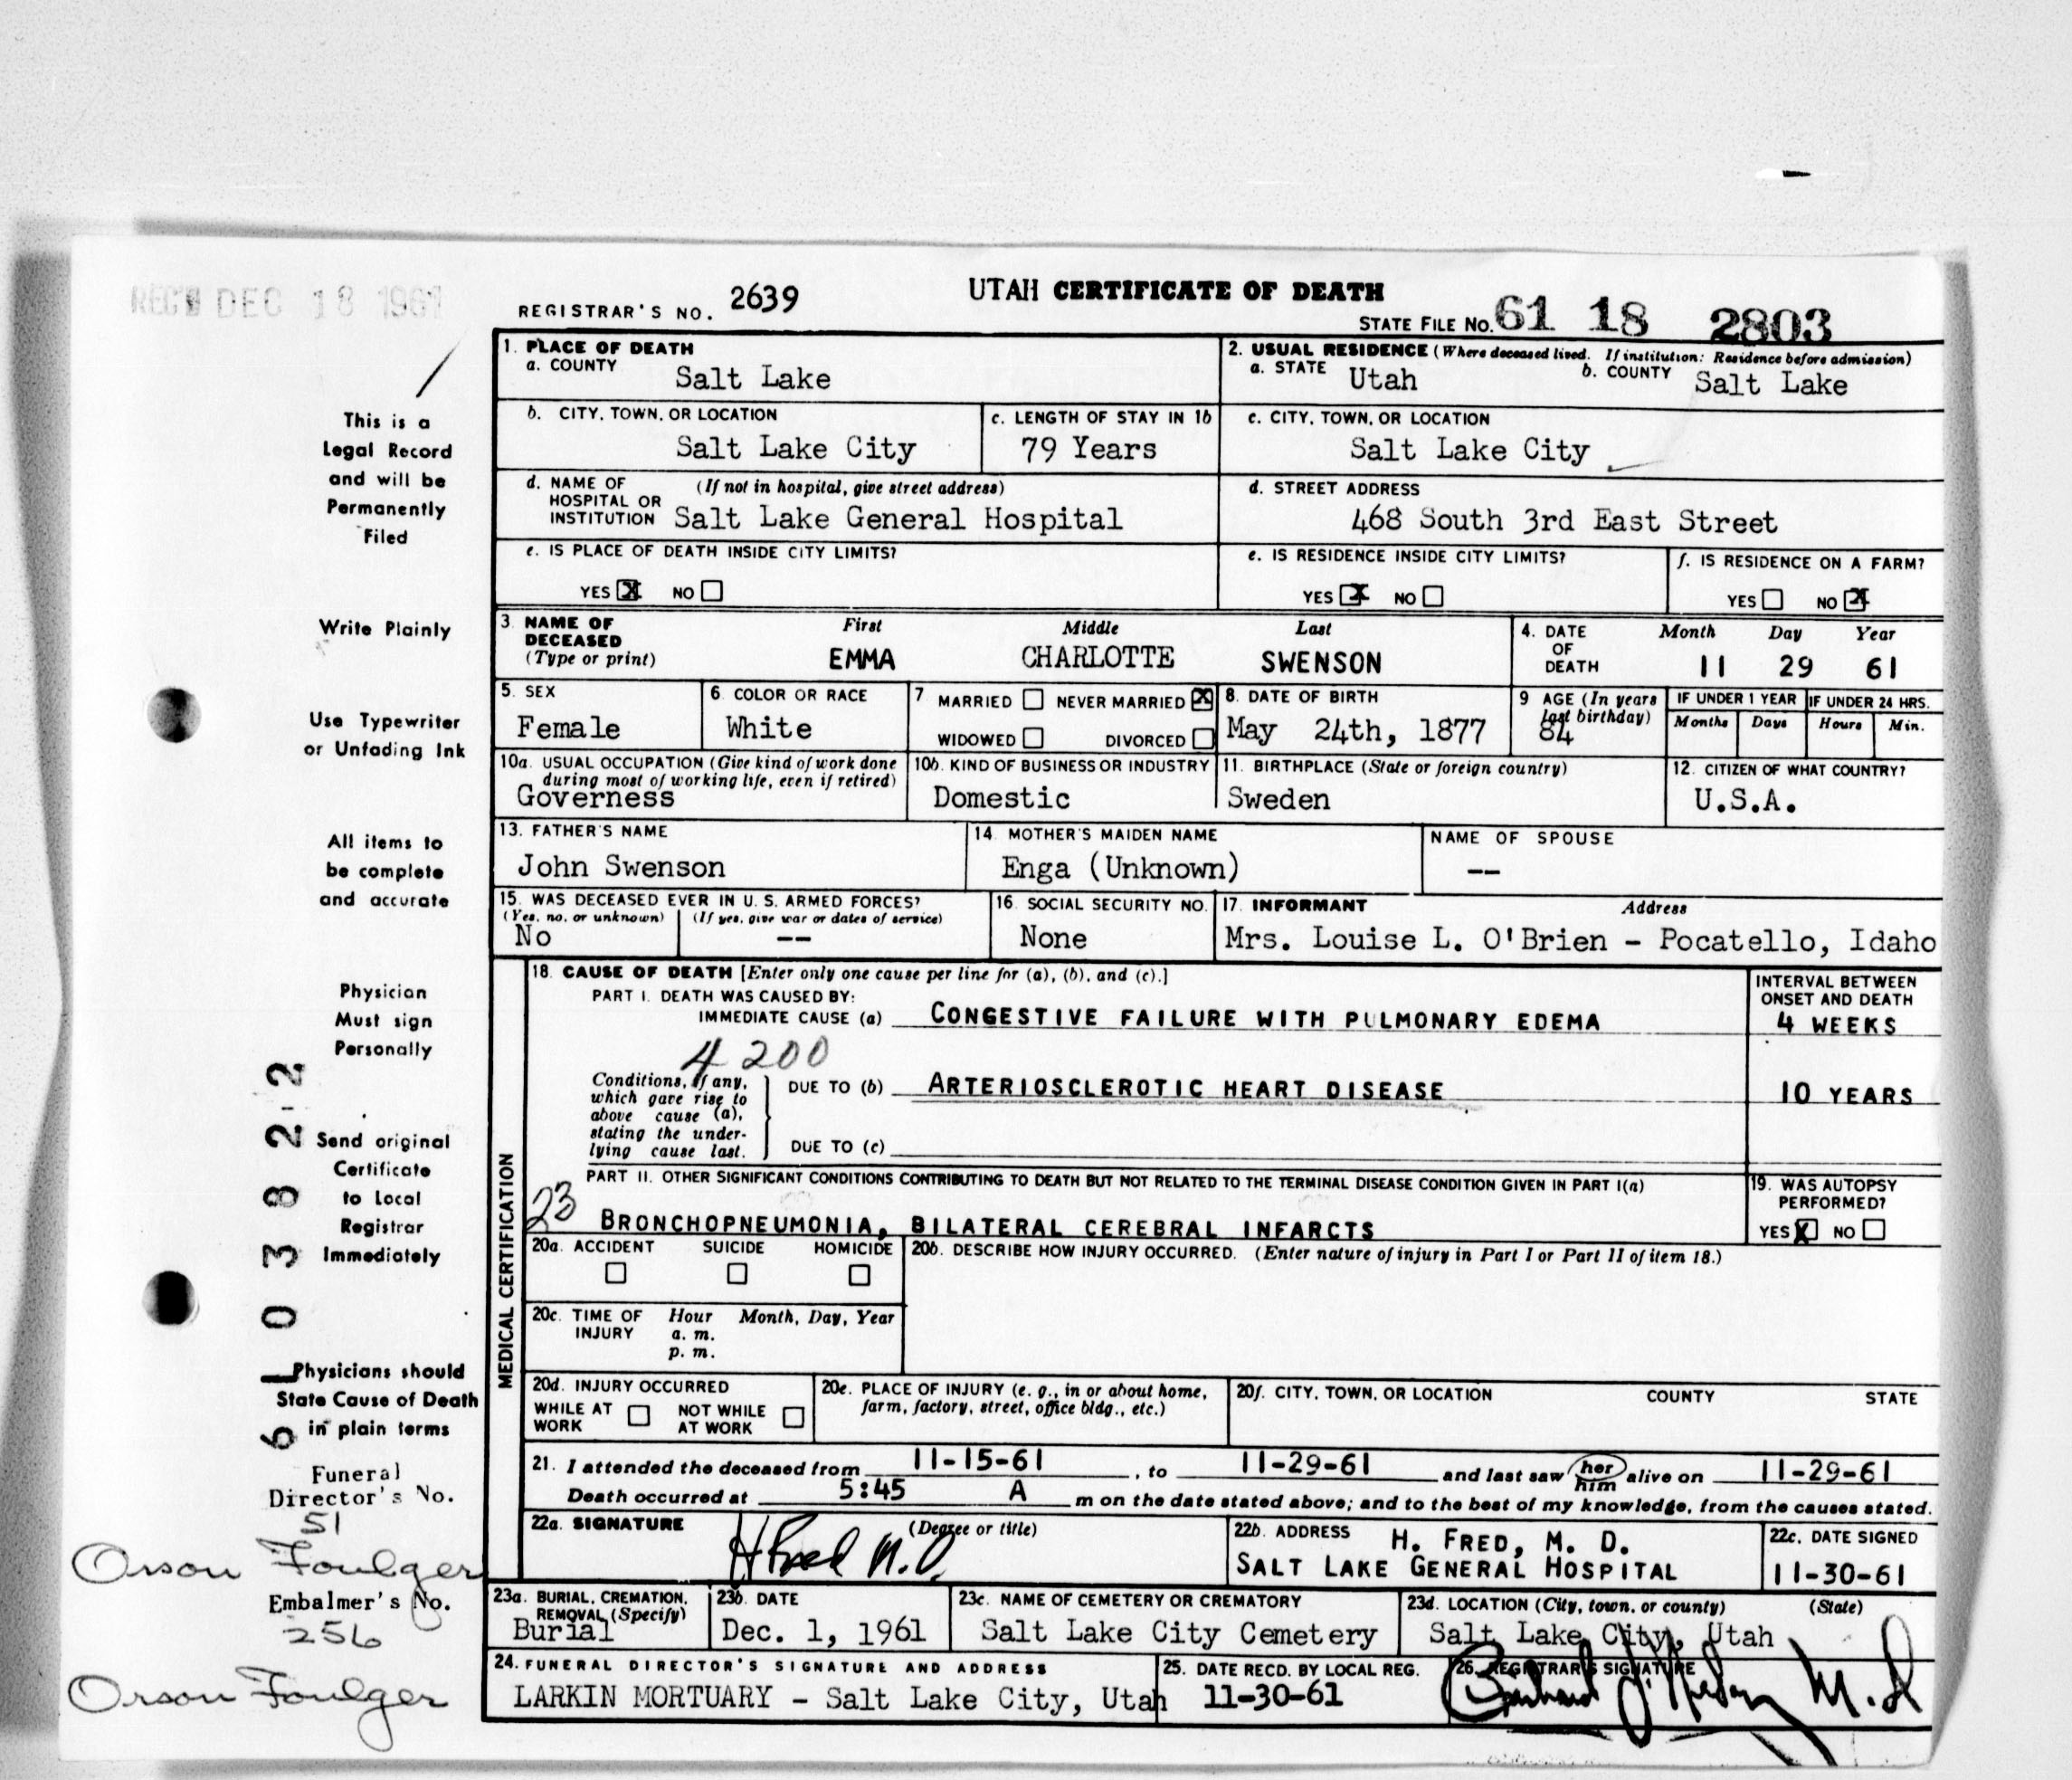 REC'D DEC 18 1961
REGISTRAR'S NO. 2639
UTAH CERTIFICATE OF DEATH
STATE FILE NO. 61 18 2803
This is a
Legal Record
and will be
Permanently
Filed
Write Plainly
Use Typewriter
or Unfading Ink
All items to
be complete
and accurate
Physician
Must sign
Personally
Send original
Certificate
to Local
Registrar
Immediately
Physicians should
State Cause of Death
in plain terms
Funeral
Director's No.
51
Orson Foulger
Embalmer's No.
256
Orson Foulger
1. PLACE OF DEATH
a. COUNTY Salt Lake
2. USUAL RESIDENCE (Where deceased lived. If institution: Residence before admission)
a. STATE Utah b. COUNTY Salt Lake
b. CITY, TOWN, OR LOCATION
Salt Lake City
c. LENGTH OF STAY IN 1b
79 Years
c. CITY, TOWN, OR LOCATION
Salt Lake City
d. NAME OF (If not in hospital, give street address)
HOSPITAL OR
INSTITUTION Salt Lake General Hospital
d. STREET ADDRESS
468 South 3rd East Street
e. IS PLACE OF DEATH INSIDE CITY LIMITS?
YES X NO
e. IS RESIDENCE INSIDE CITY LIMITS?
YES X NO
f. IS RESIDENCE ON A FARM?
YES NO X
3. NAME OF First Middle Last
DECEASED
(Type or print) EMMA CHARLOTTE SWENSON
4. DATE Month Day Year
OF
DEATH 11 29 61
5. SEX
Female
6. COLOR OR RACE
White
7 MARRIED NEVER MARRIED X
WIDOWED DIVORCED
8. DATE OF BIRTH
May 24th, 1877
9 AGE (In years
last birthday)
84
IF UNDER 1 YEAR IF UNDER 24 HRS.
Months Days Hours Min.
10a. USUAL OCCUPATION (Give kind of work done
during most of working life, even if retired)
Governess
10b. KIND OF BUSINESS OR INDUSTRY
Domestic
11. BIRTHPLACE (State or foreign country)
Sweden
12. CITIZEN OF WHAT COUNTRY?
U.S.A.
13. FATHER'S NAME
John Swenson
14. MOTHER'S MAIDEN NAME
Enga (Unknown)
NAME OF SPOUSE
--
15. WAS DECEASED EVER IN U. S. ARMED FORCES?
(Yes, no, or unknown) (If yes, give war or dates of service)
No --
16. SOCIAL SECURITY NO.
None
17. INFORMANT Address
Mrs. Louise L. O'Brien - Pocatello, Idaho
MEDICAL CERTIFICATION
18. CAUSE OF DEATH [Enter only one cause per line for (a), (b), and (c).]
PART I. DEATH WAS CAUSED BY:
IMMEDIATE CAUSE (a) CONGESTIVE FAILURE WITH PULMONARY EDEMA
INTERVAL BETWEEN
ONSET AND DEATH
4 WEEKS
4200
Conditions, if any,
which gave rise to
above cause (a),
stating the under-
lying cause last.
DUE TO (b) ARTERIOSCLEROTIC HEART DISEASE 10 YEARS
DUE TO (c)
PART II. OTHER SIGNIFICANT CONDITIONS CONTRIBUTING TO DEATH BUT NOT RELATED TO THE TERMINAL DISEASE CONDITION GIVEN IN PART I(a)
23 BRONCHOPNEUMONIA, BILATERAL CEREBRAL INFARCTS
19. WAS AUTOPSY
PERFORMED?
YES X NO
20a. ACCIDENT SUICIDE HOMICIDE
20b. DESCRIBE HOW INJURY OCCURRED. (Enter nature of injury in Part I or Part II of item 18.)
20c. TIME OF Hour Month, Day, Year
INJURY a. m.
p. m.
20d. INJURY OCCURRED
WHILE AT NOT WHILE
WORK AT WORK
20e. PLACE OF INJURY (e. g., in or about home,
farm, factory, street, office bldg., etc.)
20f. CITY, TOWN, OR LOCATION COUNTY STATE
21. I attended the deceased from 11-15-61, to 11-29-61 and last saw her him alive on 11-29-61
Death occurred at 5:45 A m on the date stated above; and to the best of my knowledge, from the causes stated.
22a. SIGNATURE (Degree or title)
H Fred M.D.
22b. ADDRESS H. FRED, M. D.
SALT LAKE GENERAL HOSPITAL
22c. DATE SIGNED
11-30-61
23a. BURIAL, CREMATION,
REMOVAL (Specify)
Burial
23b. DATE
Dec. 1, 1961
23c. NAME OF CEMETERY OR CREMATORY
Salt Lake City Cemetery
23d. LOCATION (City, town, or county) (State)
Salt Lake City, Utah
24. FUNERAL DIRECTOR'S SIGNATURE AND ADDRESS
LARKIN MORTUARY - Salt Lake City, Utah
25. DATE RECD. BY LOCAL REG.
11-30-61
26. REGISTRAR'S SIGNATURE
M.D